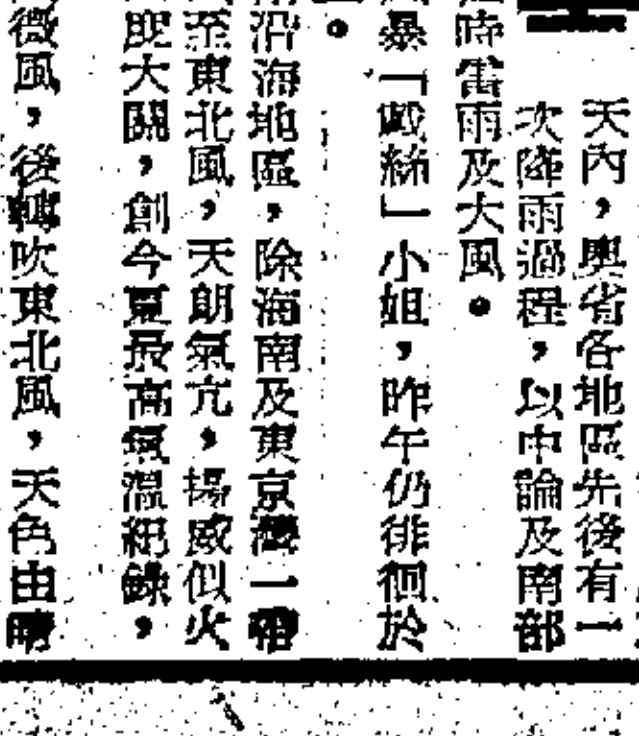 天內，奧省各地區先後有一
次降雨過程，以中論及南部
時雷雨及大風。
暴「戴絲」小姐，昨午仍徘徊於
沿海地區，除海南及東京灣一帶
至東北風，天朗氣亢，揚威似火
度大關，創今夏最高氣溫紀錄，
微風，後轉吹東北風，天色由晴